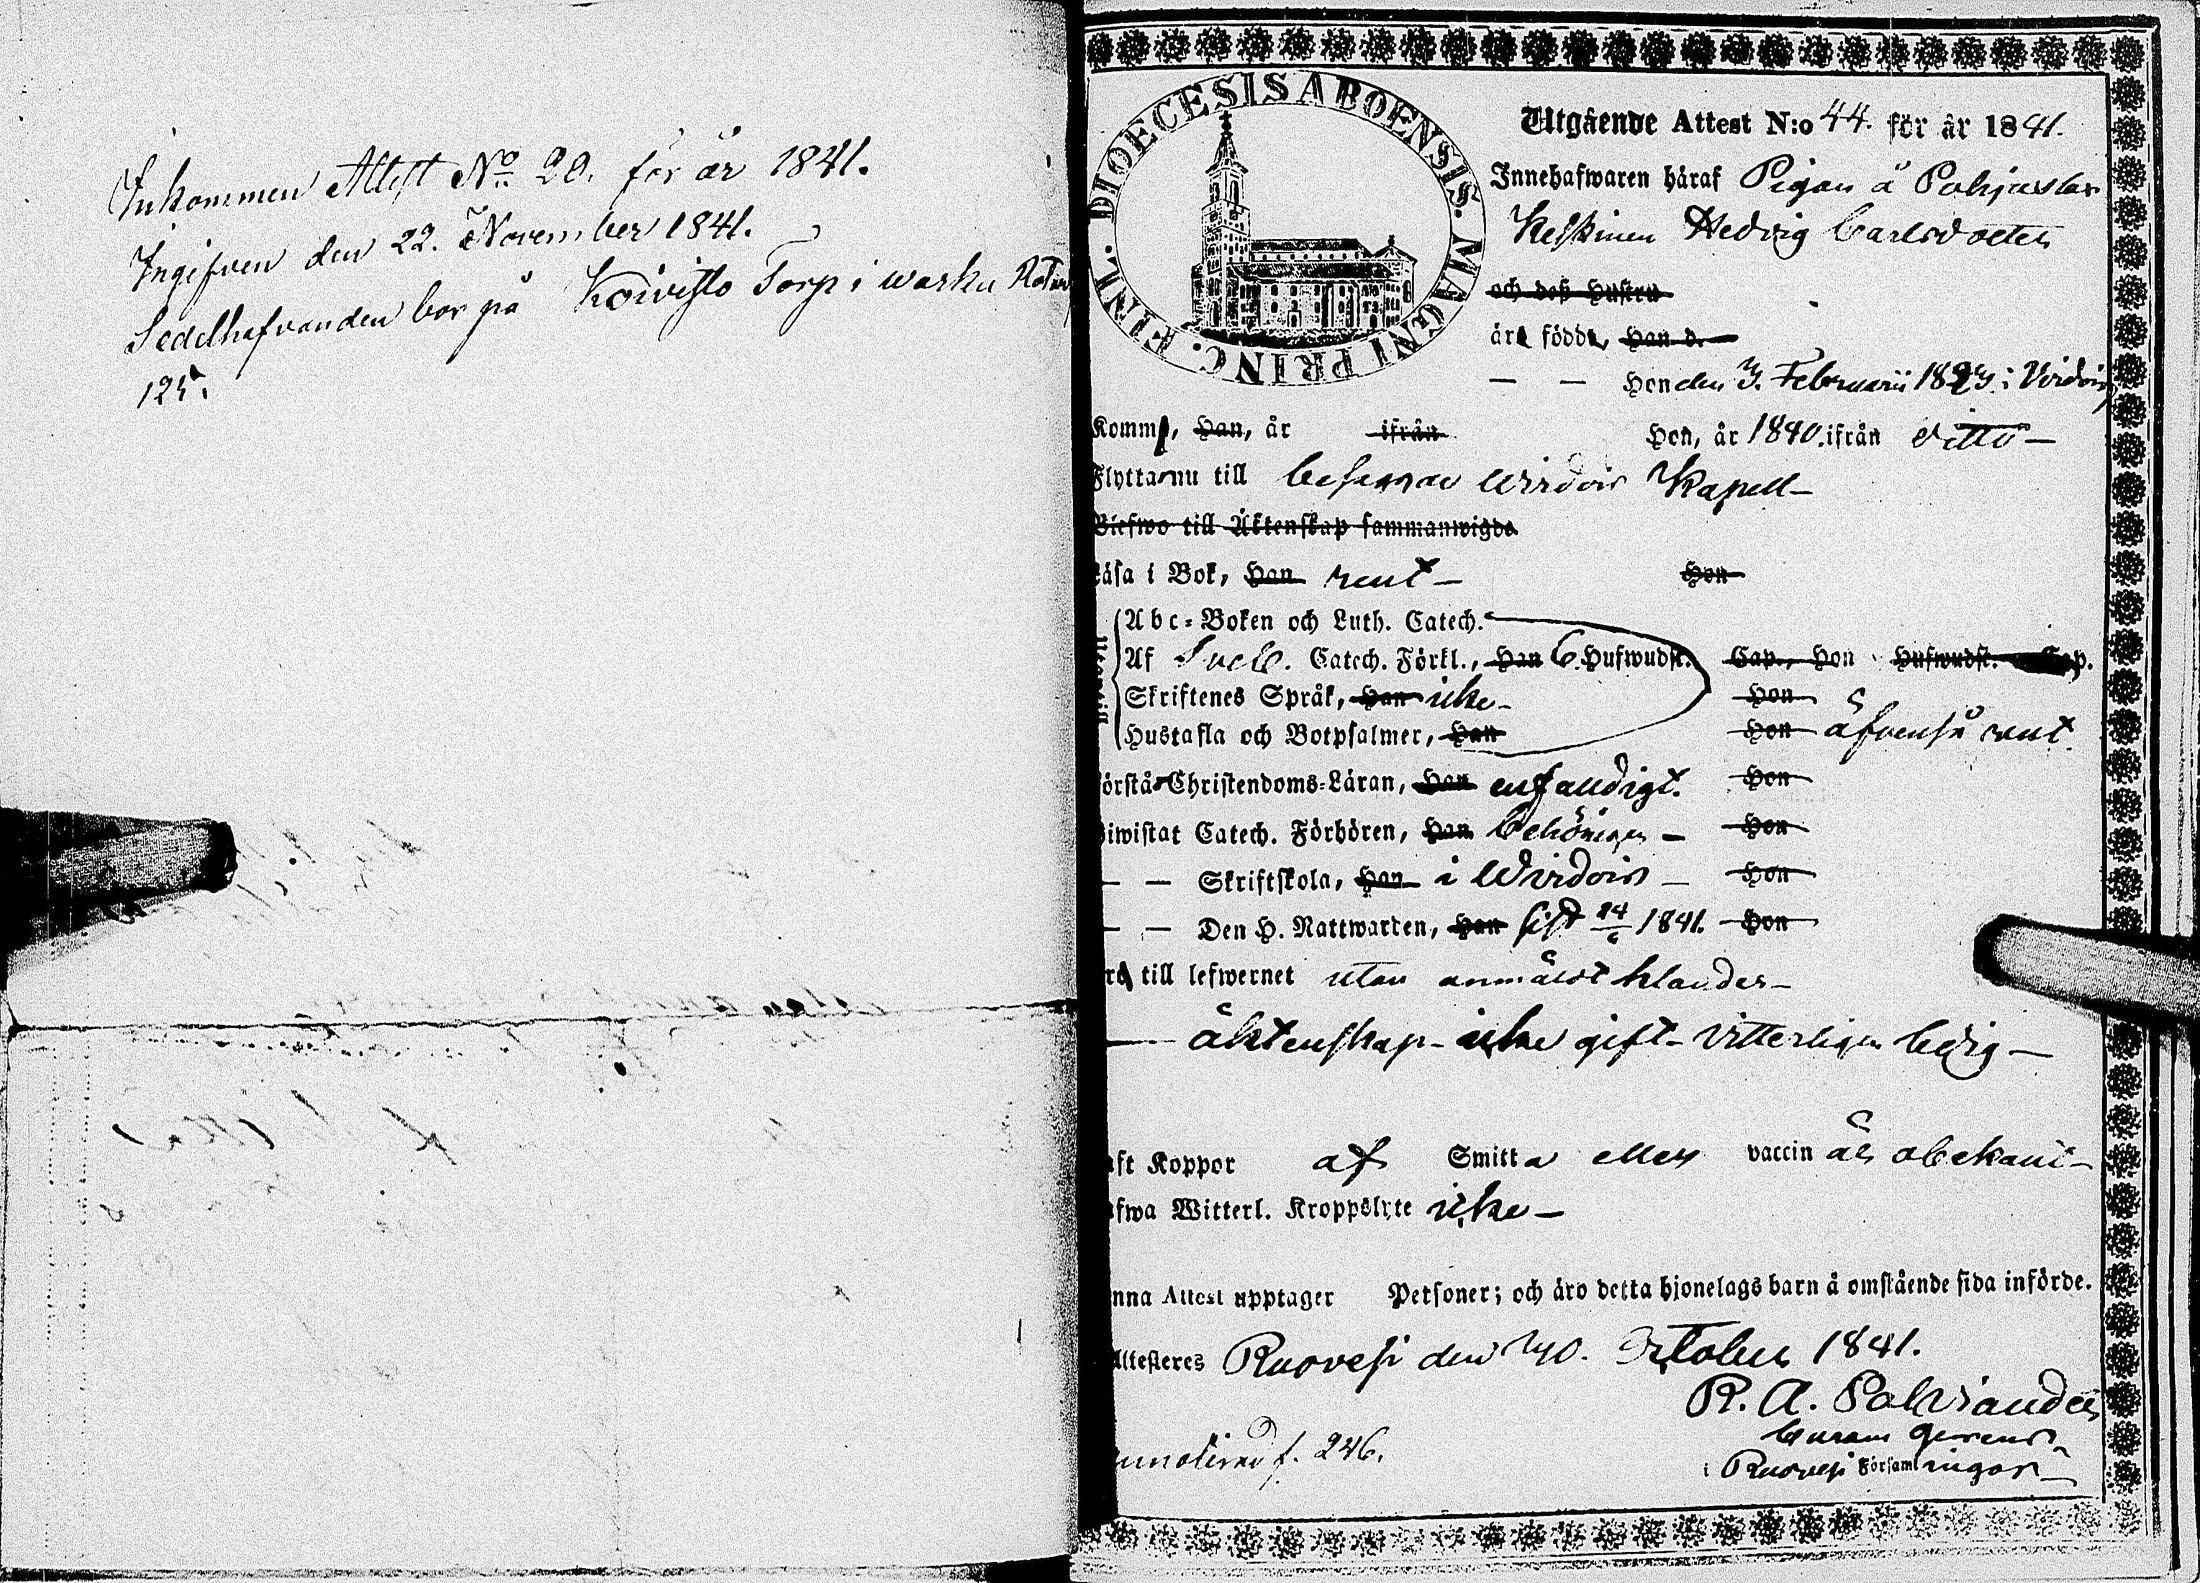 Inkommen Attest No 20. för år 1841.
Ingifven den 22. November 1841.
Sedelhafvanden bor på Koivisto Torp i
125.
DIOECESIS ABOENSIS. MAGNI PRINC. FINL.
Utgående Attest N:o 44. för år 1841.
Innehafwaren häraf Pigan å Pohjaslax
Keskinen Hedvig Carlsdotter
och deß Hustru
är född, Han d.
— — Hon den 3. Februarii i Virdois
Komm, Han, år ifrån Hon, år 1840. ifrån ditto —
Flyttar nu till besagde Virdois Kapell —
Blefwo till Äktenskap sammanwigde
Läsa i Bok, Han rent — Hon
Abc-Boken och Luth. Catech.
Af Sveb. Catech. Förkl., Han 6. Hufwudst. Cap., Hon Hufwudst. Cap.
Skriftenes Språk, Han icke — Hon
Hustafla och Botpsalmer, Han Hon äfvenså rent
Förstår Christendoms-Läran, Han enfaldigt. Hon
Biwistat Catech. Förhören, Han behörigen — Hon
— — Skriftskola, Han i Virdois — Hon
— — Den H. Nattwarden, Han sist 24/6 1841. Hon
till lefwernet utan anmäldt klander —
— äktenskap — icke gift — vitterligen ledig —
Haft Koppor af Smitta eller vaccin är obekant —
Hafwa Witterl. Kroppslyte icke —
Denna Attest upptager Personer; och äro detta hjonelags barn å omstående sida införde.
Attesteres Ruovesi den 30. October 1841.
R. A. Polviander
Curam gerens
i Ruovesi Församlingar
f. 246.